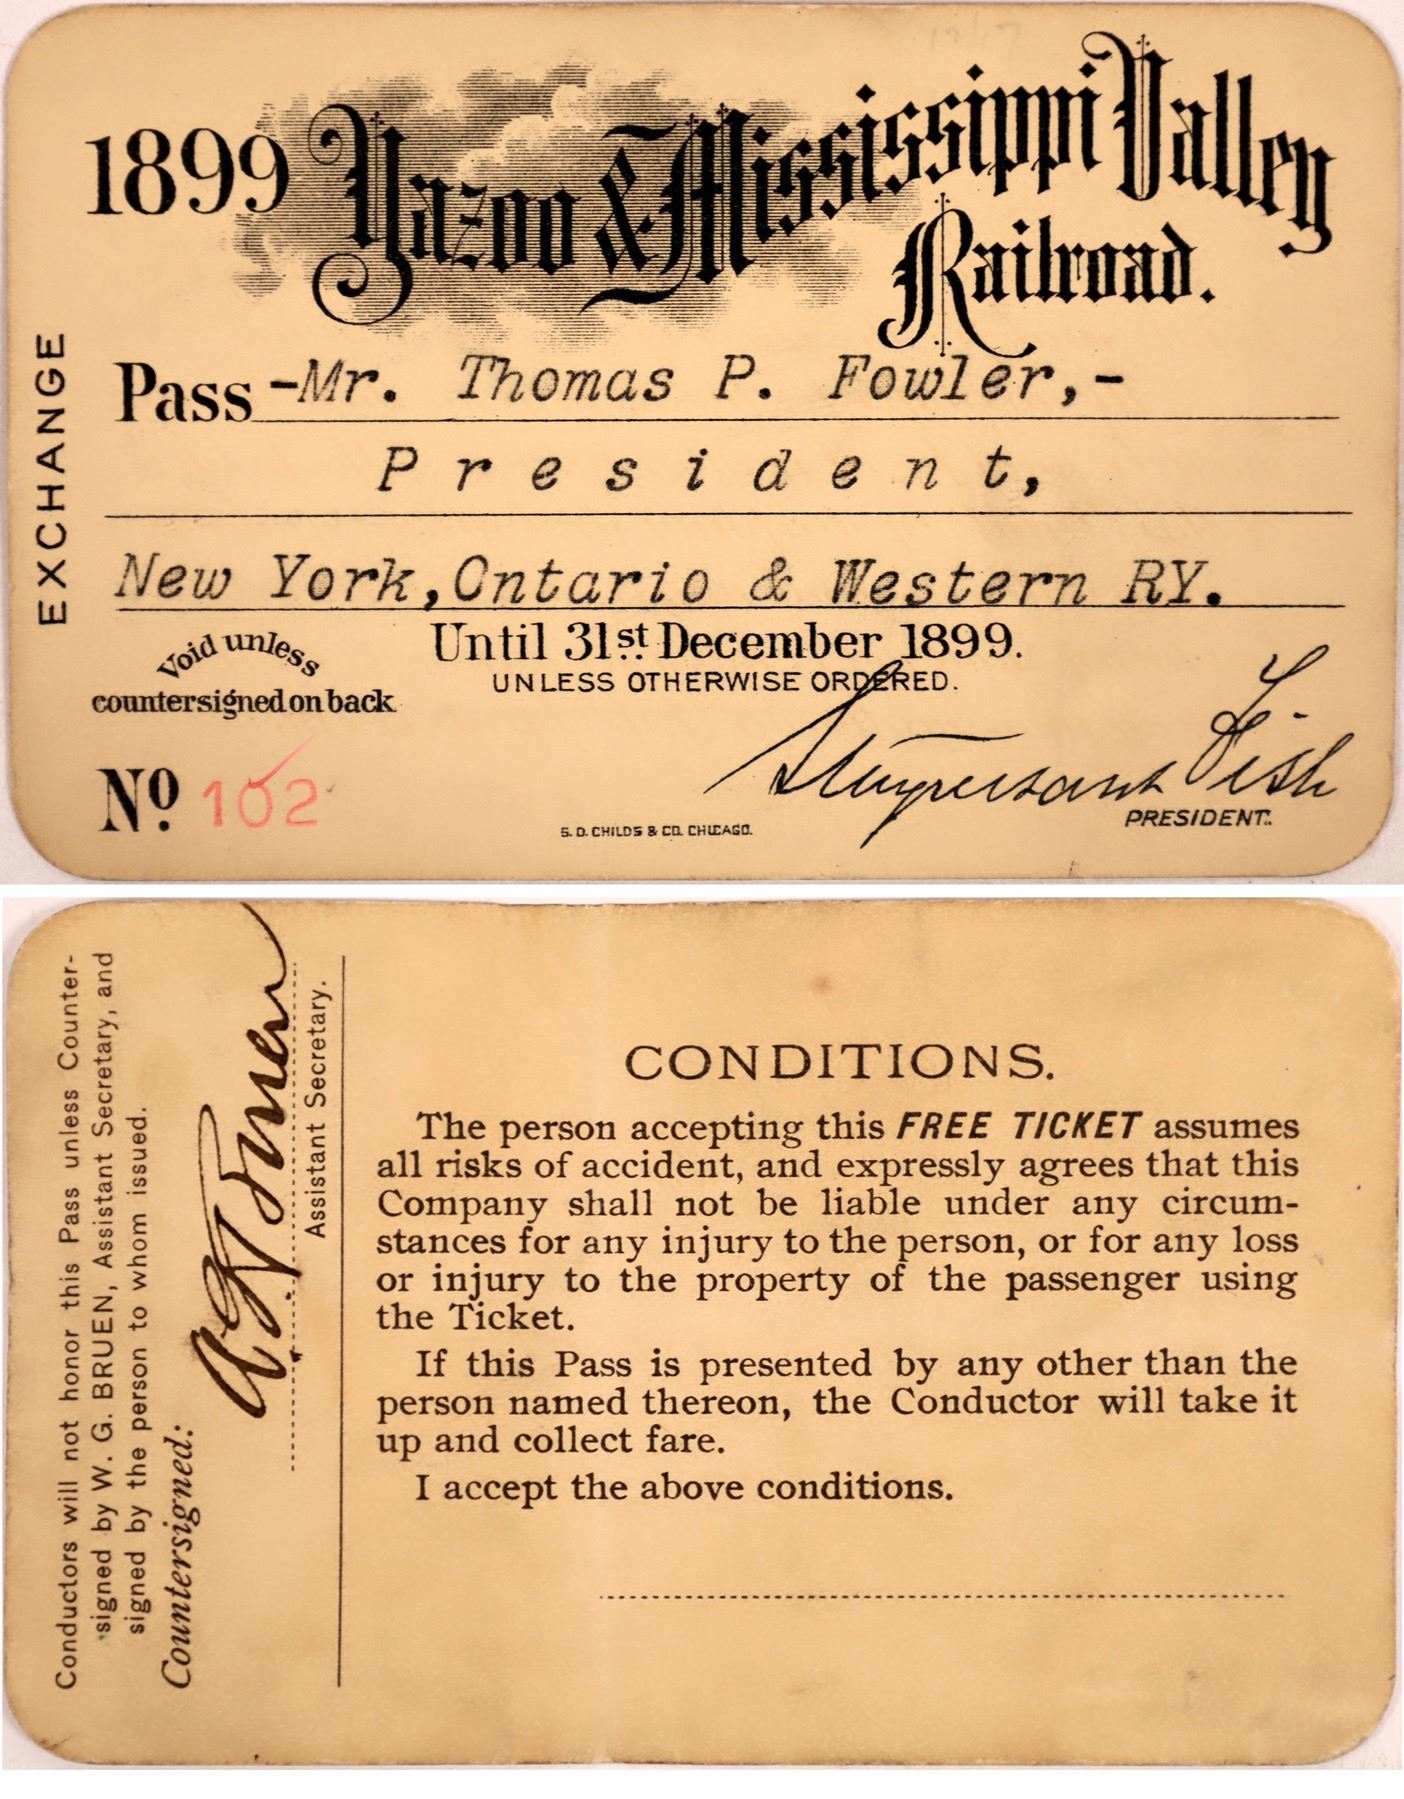 1899 Yazoo & Mississippi Valley
Railroad.
EXCHANGE
Pass -Mr. Thomas P. Fowler,-
President,
New York, Ontario & Western RY.
Until 31st December 1899.
UNLESS OTHERWISE ORDERED.
Void unless
countersigned on back
No. 102
Stuyvesant Fish
PRESIDENT.
S. D. CHILDS & CO. CHICAGO.
Conductors will not honor this Pass unless Counter-
signed by W. G. BRUEN, Assistant Secretary, and
signed by the person to whom issued.
Countersigned:
W G Bruen
Assistant Secretary.
CONDITIONS.
The person accepting this FREE TICKET assumes
all risks of accident, and expressly agrees that this
Company shall not be liable under any circum-
stances for any injury to the person, or for any loss
or injury to the property of the passenger using
the Ticket.
If this Pass is presented by any other than the
person named thereon, the Conductor will take it
up and collect fare.
I accept the above conditions.